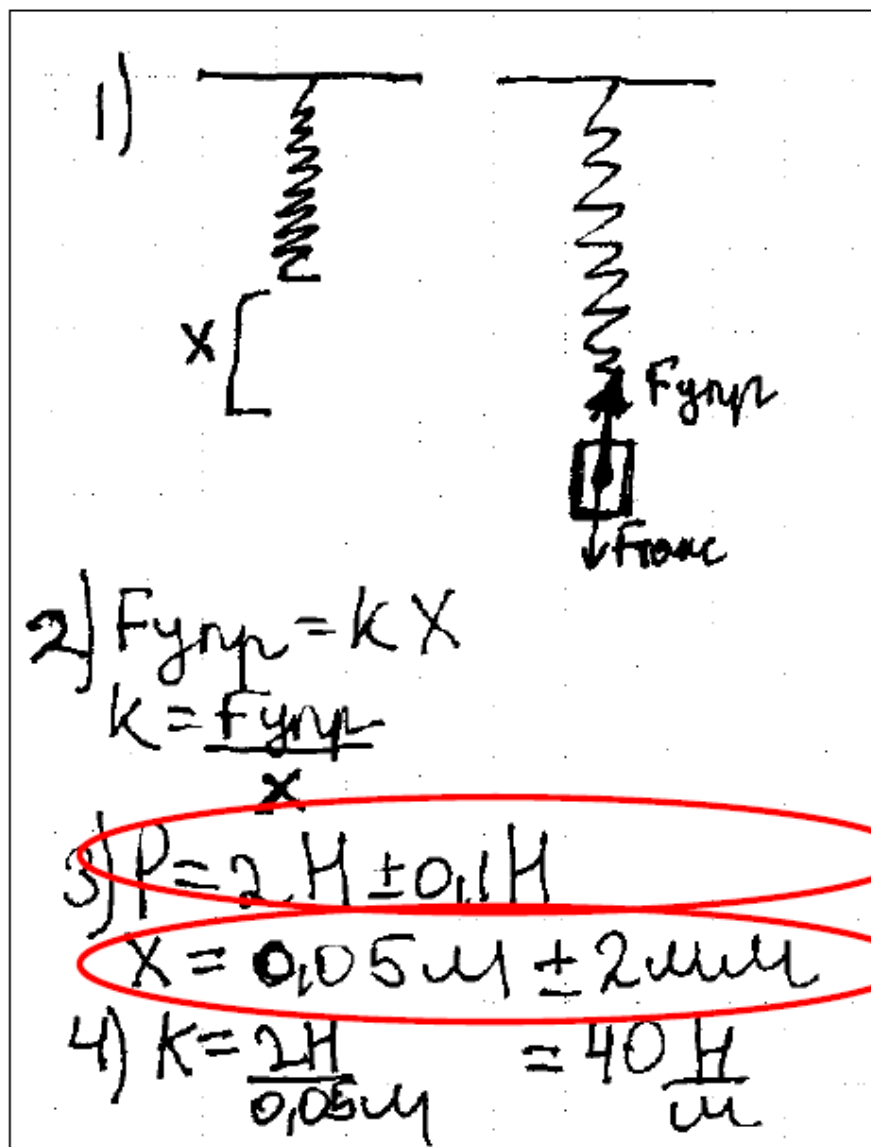 1)
X
Fупр
Fтяж
2) Fупр = k X
k = Fупр
x
3) P = 2 H ± 0,1 H
X = 0,05 м ± 2 мм
4) K = 2H = 40 H
0,05м м